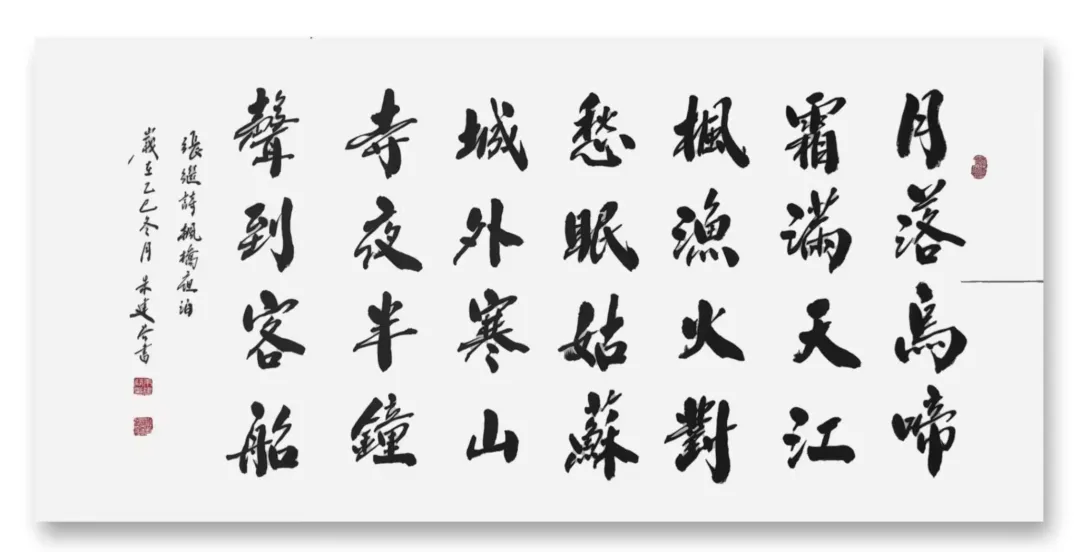 月落烏啼
霜滿天江
楓漁火對
愁眠姑蘇
城外寒山
寺夜半鐘
聲到客船
張繼詩楓橋夜泊
歲在乙巳冬月 朱建書